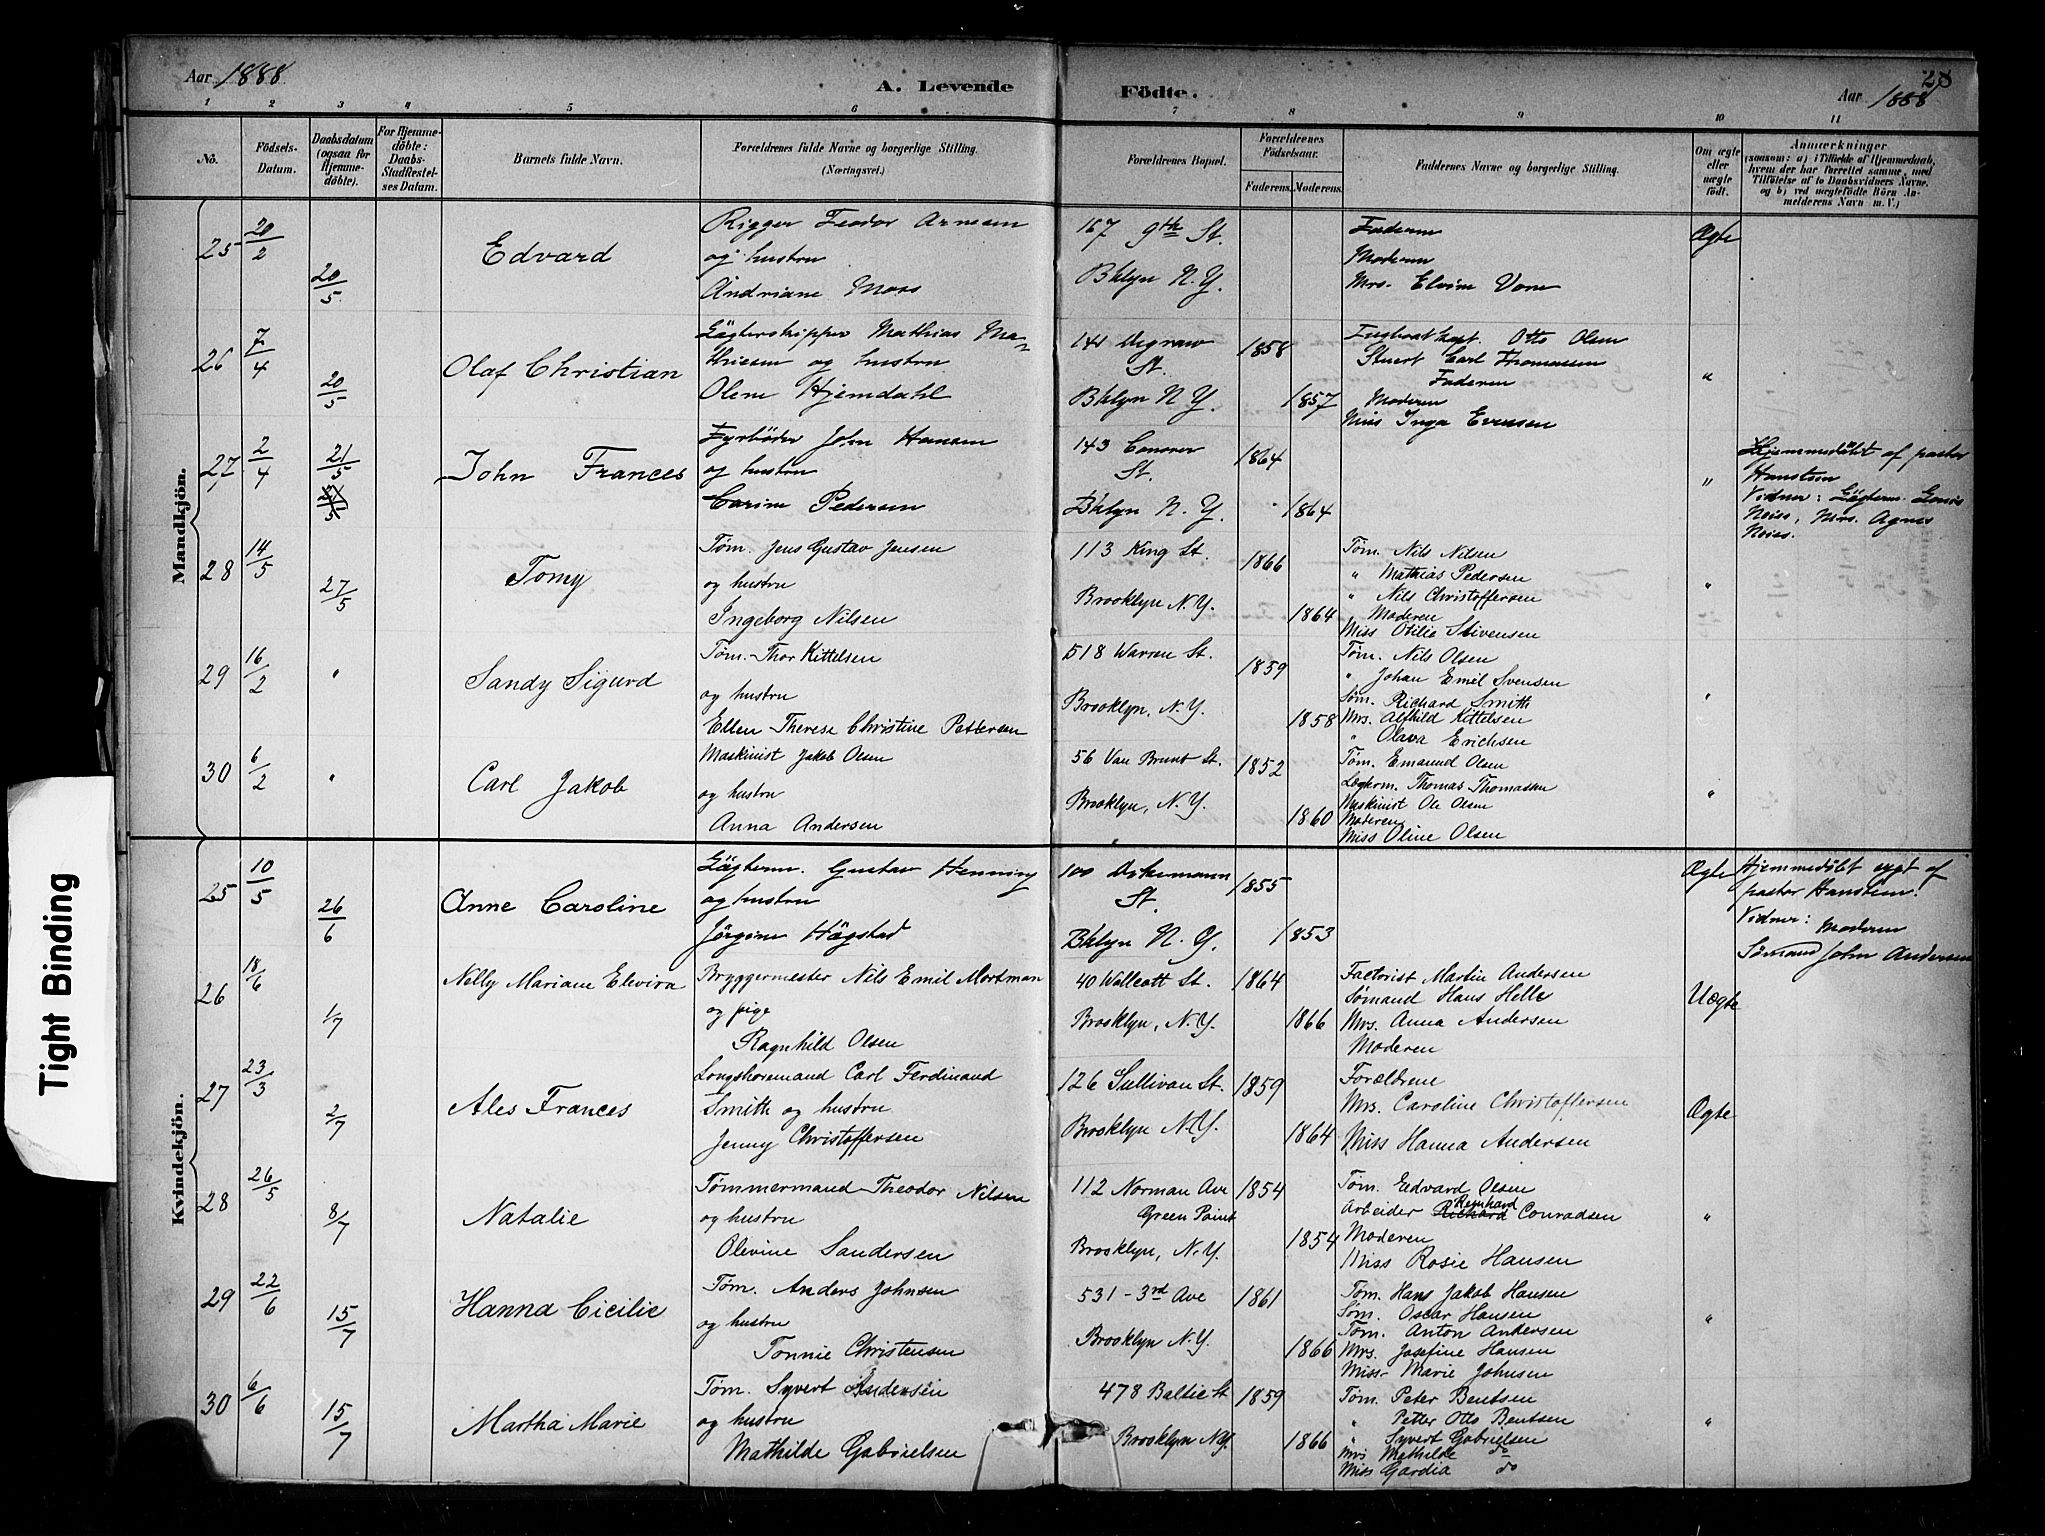 Aar 1888
A. Levende
Födte.
28
Aar 1888
1 2 3 4 5 6 7 8 9 10 11
Nö.
Födsels-Datum.
Daabsdatum (ogsaa for Hjemmedöbte).
For Hjemmedöbte: Daabs-Stadfæstelses Datum.
Barnets fulde Navn.
Forældrenes fulde Navne og borgerlige Stilling.
(Næringsvei.)
Forældrenes Bopæl.
Forældrenes Födselsaar.
Faderens. Moderens.
Faddernes Navne og borgerlige Stilling.
Om ægte eller uægte födt.
Anmærkninger
(saasom: a) i Tilfælde af Hjemmedaab, hvem der har forrettet samme, med Tilföielse af to Daabsvidners Navne, og b) ved uægtefödte Börn Anmelderens Navn m. V.)
Mandkjön.
25 20/2 20/5 Edvard
Rigger Teodor Arnesen
og hustru
Andriane Moss
167 9th St.
Bklyn N. Y.
Faderen
Moderen
Mrs. Elvine Vore
Ægte
26 7/4 20/5 Olaf Christian
Lägterskipper Mathias Ma-
thiesen og hustru
Olene Hjemdahl
141 Degraw
St.
Bklyn N. Y.
1858
1857
Tugboatkapt. Otto Olsen
Stuert Carl Thomassen
Faderen
Moderen
Miss Inga Evensen
"
27 2/4 21/5 John Frances
Fyrböder John Hansen
og hustru
Carine Pedersen
143 Conover
St.
Bklyn N. Y.
1864
1864
"
Hjemmedöbt af pastor
Hansteen
Vidner: Lägterm. Louis
Neiss, Mrs. Agnes
Neiss.
28 14/5 27/5 Tomy
Tøm. Jens Gustav Jensen
og hustru
Ingeborg Nilsen
113 King St.
Brooklyn N. Y.
1866
1864
Tøm. Nils Nilsen
" Mathias Pedersen
" Nils Christoffersen
Moderen
Miss Otilie Stivensen
"
29 16/2 " Sandy Sigurd
Tøm. Thor Kittelsen
og hustru
Ellen Therese Christine Pettersen
518 Warren St.
Brooklyn, N. Y.
1859
1858
Tøm. Nils Olsen
" Johan Emil Svensen
Søm. Richard Smith
Mrs. Alfhild Kittelsen
" Olava Erichsen
"
30 6/2 " Carl Jakob
Maskinist Jakob Olsen
og hustru
Anna Andersen
56 Van Brunt St.
Brooklyn, N. Y.
1852
1860
Tøm. Emanud Olsen
Lægterm. Thomas Thomassen
Maskinist Ole Olsen
Moderen
Miss Oline Olsen
"
Kvindekjön.
25 10/5 26/6 Anne Caroline
Lägterm. Gustav Henning
og hustru
Jörgine Högstad
100 Dikemann
St.
Bklyn N. Y.
1855
1853
Ægte
Hjemmedöbt sygt af
pastor Hansteen.
Vidner:
Moderen
Sømand John Andersen
26 18/6 1/7 Nelly Mariane Elevira
Bryggermester Nils Emil Mortman
og pige
Ragnhild Olsen
40 Wollcott St.
Brooklyn, N. Y.
1864
1866
Factorist Martin Andersen
Sømand Hans Helle
Mrs. Anna Andersen
Moderen
Uægte
27 23/3 2/7 Ales Frances
Longshoremand Carl Ferdinand
Smith og hustru
Jenny Christoffersen
126 Sullivan St.
Brooklyn N. Y.
1859
1864
Forældrene
Mrs. Caroline Christoffersen
Miss Hanna Andersen
Ægte
28 26/5 8/7 Natalie
Tømmermand Theodor Nilsen
og hustru
Olevine Sandersen
112 Norman Ave
Green Point
Brooklyn, N. Y.
1854
1854
Tøm. Edvard Olsen
Reinhard
Arbeider Richard Conradsen
Moderen
Miss Rosie Hansen
"
29 22/6 15/7 Hanna Cicilie
Tøm. Anders Johnsen
og hustru
Tonnie Christensen
531 - 3rd Ave
Brooklyn N. Y.
1861
1866
Tøm. Hans Jakob Hansen
Søm. Oscar Hansen
Tøm. Anton Andersen
Mrs. Josefine Hansen
Miss Marie Johnsen
"
30 6/6 15/7 Martha Marie
Tøm. Syvert Andersen
og hustru
Mathilde Gabrielsen
478 Baltic St
Brooklyn N.Y.
1859
1866
Tøm. Peter Bentsen
" Petter Otto Bentsen
" Syvert Gabrielsen
Mrs Mathilde do
Miss Gardia do
"
Tight Binding